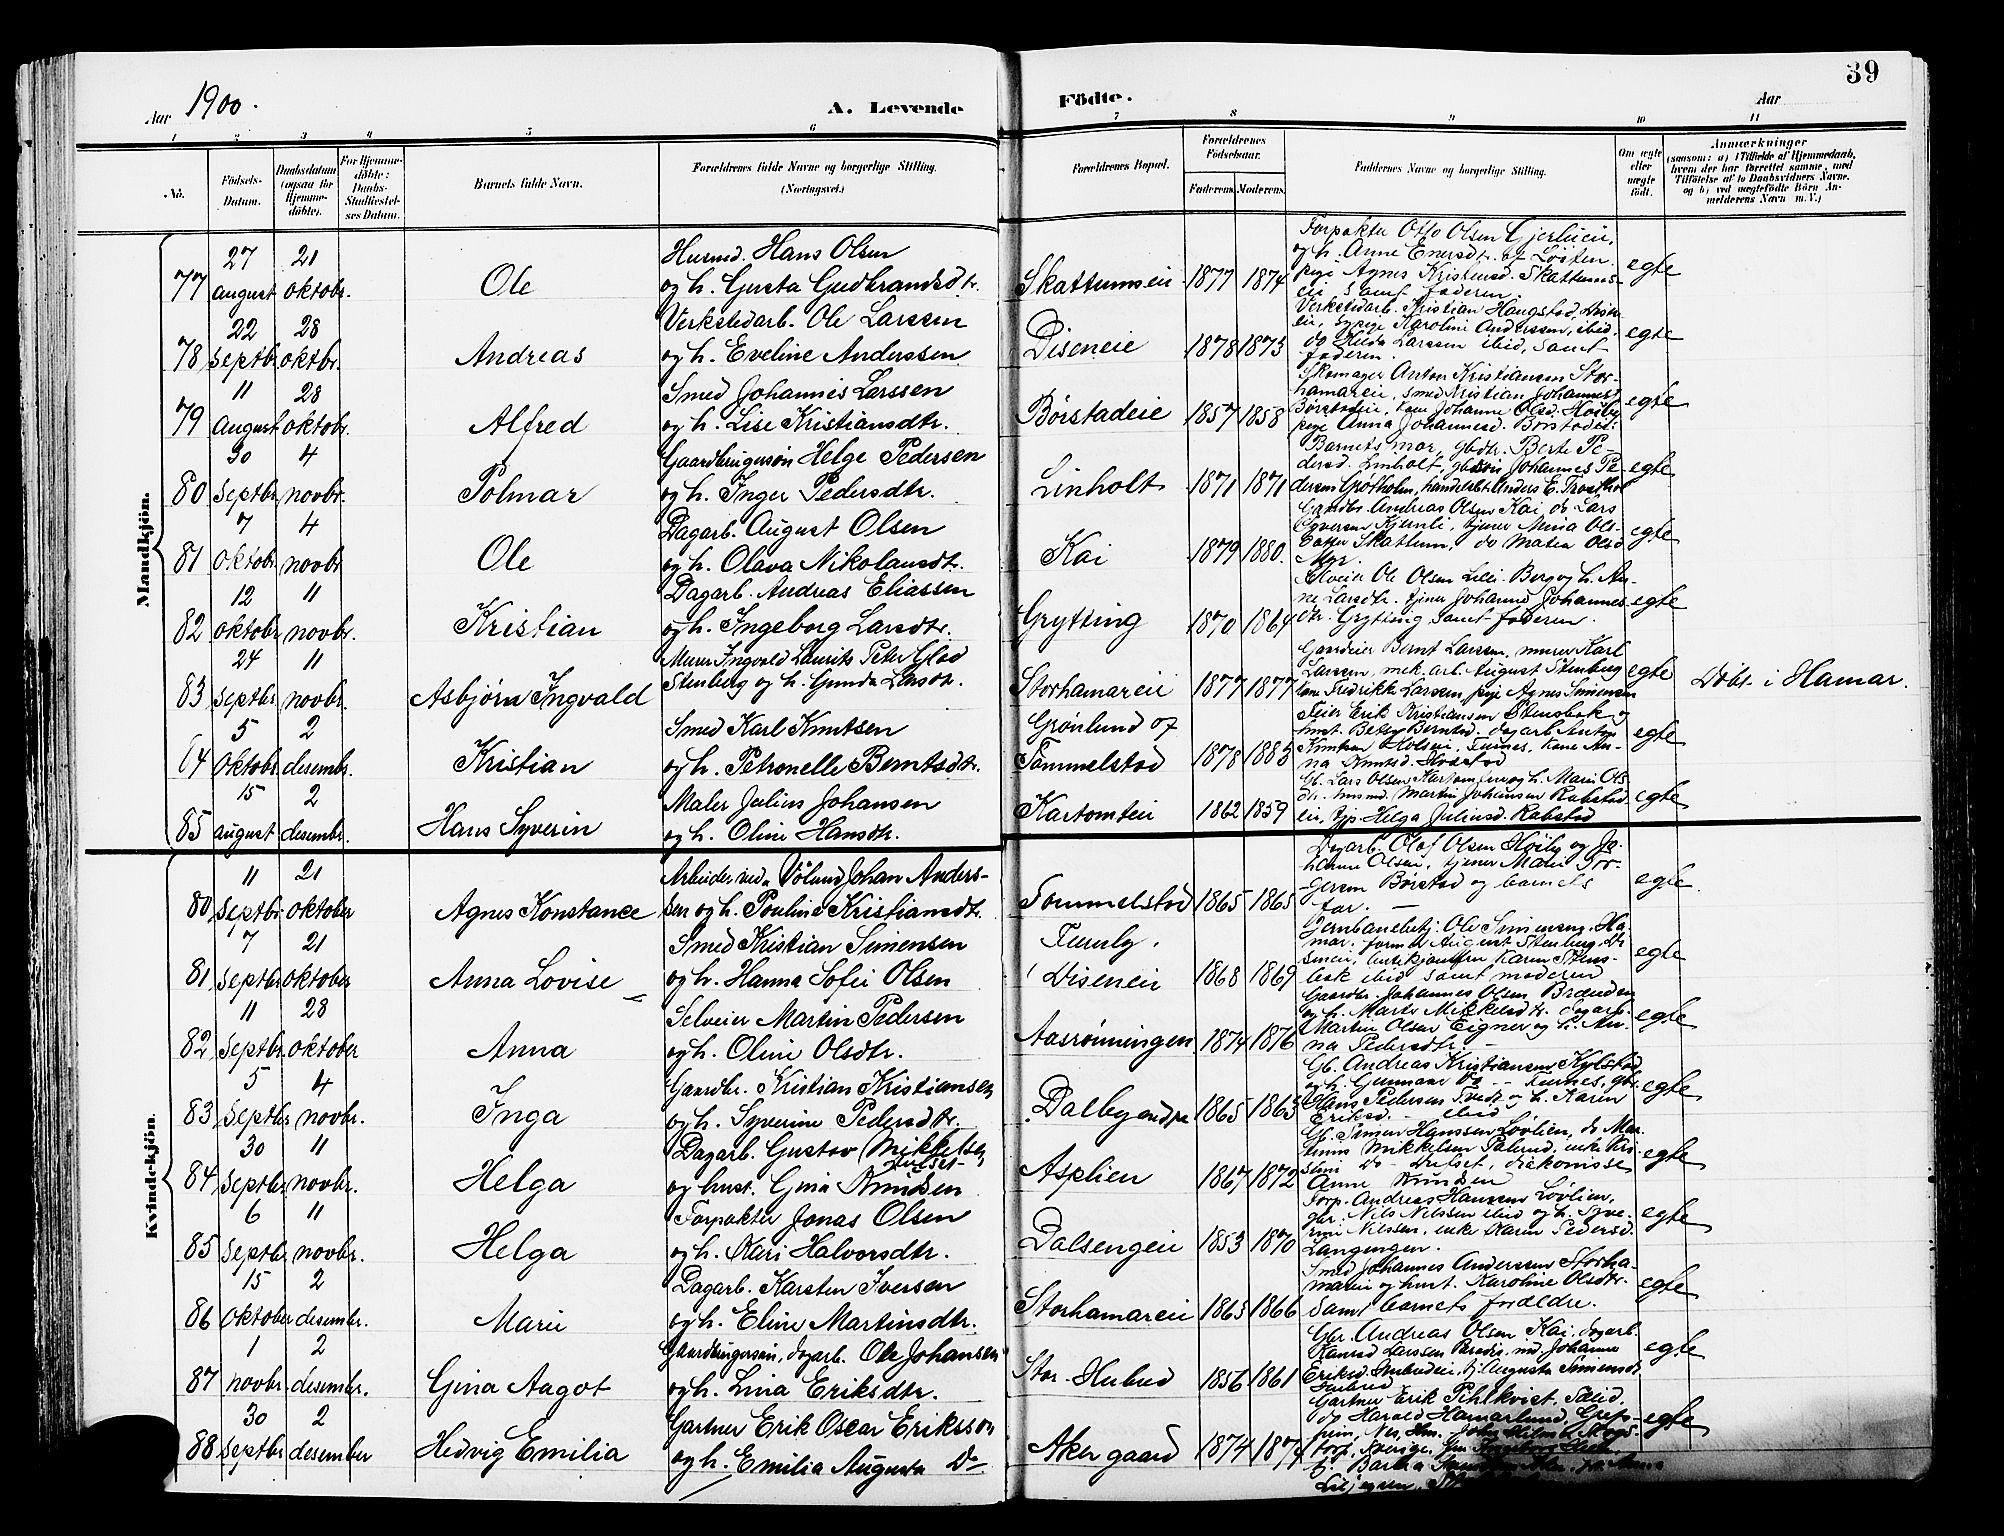 39
Aar 1900.
A. Levende Födte.
Aar
1 2 3 4 5 6 7 8 9 10 11
No.
Födsels-Datum.
Daabsdatum (ogsaa for Hjemme-döbte).
For Hjemme-döbte: Daabs-Stadfæstel-ses Datum.
Barnets fulde Navn.
Forældrenes fulde Navne og borgerlige Stilling. (Næringsvei.)
Forældrenes Bopæl.
Forældrenes Födselsaar.
Faderens. Moderens.
Faddernes Navne og borgerlige Stilling.
Om ægte eller uægte født.
Anmærkninger
(saasom: a) i Tilfælde af Hjemmedaab, hvem der har forrettet samme, med Tilföielse af to Daabsvidners Navne, og b) ved uægtefödte Börn An-melderens Navn m. V.)
Mandkjön.
77 27 august 21 oktobr. Ole
Husmd. Hans Olsen
og h. Gusta Gudbrandsdtr.
Skattumseie 1877 1874
Forpakter Otto Olsen Gjerlueie,
og h. Anne Enersdtr. af Løiten.
pige Agnes Kristensd. Skattums-
eie samt faderen
egte
78 22 septbr. 28 oktbr. Andreas
Verkstedarb. Ole Larssen
og h. Eveline Anderssen
Diseneie 1878 1873
Verkstedarb. Kristian Haugstad, Disen-
eie, sypige Karoline Anderssen, ibid,
do Hilda Larssen ibid, samt
faderen.
egte
79 11 august 28 oktobr. Alfred
Smed Johannes Larssen
og h. Lise Kristiansdtr.
Børstadeie 1857 1858
Skomager Anton Kristiansen Stor-
hamareie, smed Kristian Johannes.
Børstadeie, kone Johanne Olsd. Høiby
pige Anna Johannesd. Børstadei:
egte
80 30 septbr. 4 novbr. Polmar
Gaardbrugersøn Helge Pedersen
og h. Inger Pedersdtr.
Linholt 1871 1871
Barnets mor, gbdtr. Berte Pe-
dersd. Linholt, gbsøn Johannes Pe-
dersen Grøtholm, handelsbt. Anders E. Frostho
egte
81 7 oktobr. 4 novbr. Ole
Dagarb. August Olsen
og h. Olava Nikolausdtr.
Kai 1879 1880.
Gaardbr. Andreas Olsen Kai do Lars
Syversen Kjernli, tjener Mina Ols-
datter Skattum, do Matea Olsd
Myr.
egte
82 12 oktobr. 11 novbr. Kristian
Dagarb. Andreas Eliassen
og h. Ingeborg Larsdtr.
Grytting 1870 1864
Selveier Ole Olsen Lille-Berg og h. An-
ne Larsdtr. tjener Johanne Johannes-
dtr. Grytting samt faderen.
egte
83 24 septbr. 11 novbr. Asbjørn Ingvald
Murer Ingvald Laurits Peter Glad
Stenberg og h. Gunda Larsdtr.
Storhamareie 1877 1877
Gaardeier Bernt Larssen, murer Karl
Larssen, mek. arb. August Stenberg
kone Fredrikke Larssen pige Agnes Simensen
egte
Døbt i Hamar.
64 5 oktobr. 2 desembr. Kristian
Smed Karl Knutsen
og h. Petronelle Berntsdtr.
Grønlund af
Tommelstad 1878 1883
Feier Erik Kristiansen Stensbak og
hust. Betsy Berntsd. dagarb. Anton
Knutsen Holseie, Furnes, kone An-
na Knutsd. Hostad
egte
85 15 august 2 desembr. Hans Syverin
Maler Julius Johansen
og h. Oline Hansdtr.
Kartomteie 1862 1859
Gb. Lars Olsen Kartomten og h. Marie Ols
dtr. husmd. Martin Johansen Rabstad
eie, tjp Helga Juliusd. Rabstad
egte
Kvindekjön.
80 11 septbr. 21 oktober Agnes Konstance
Arbeider ved Vølund Johan Anders-
sen og h. Pauline Kristiansdtr.
Tommelstad 1865 1865
Dagarb. Olaf Olsen Høiby og Jo-
hanne Olsen, tjener Mari Tor-
gersen Børstad og barnets
far. —
egte.
81 7 septbr. 21 oktober Anna Lovise
Smed Kristian Simensen
og h. Hanna Sofie Olsen
Furuly.
Diseneie 1868 1869
Jernbanebetj. Ole Simensen, Ha-
mar. former August Stenberg, Di
seneie, butikjomfru Karen Stens-
bak ibid samt moderen
egte
82 11 septbr. 28 oktober Anna
Selveier Martin Pedersen
og h. Oline Olsdtr.
Aasrønningen 1874 1876
Gaardbr. Johannes Olsen Brænden
og h. Marte Mikkelsdtr. dagarb.
Martin Olsen Eigner og h. An-
na Pedersdtr. —
egte
83 5 septbr. 4 novbr. Inga
Gaardbr. Kristian Kristiansen
og h. Syverine Pedersdtr.
Dalby andpa 1865 1863
Gb. Andreas Kristiansen Kylstad
og h. Gunnaar Do — Furnes, gbr.
Hans Pedersen Tvede og h. Karen
Eriksd. — ibid
egte
84 30 septbr. 11 novbr. Helga
Dagarb. Gustav Mikkelsen
og hust. Gina Knudsen
Asplien 1867 1872
Gb. Simen Hanssen Løvlien, do Mar-
tinus Mikkelsen Pálerud, enke Kri-
stine Do — Dufset, diakonisse
Anne Knudsen
egte
85 6 septbr. 11 novbr. Helga
Forpakter Jonas Olsen
og h. Kari Halvorsdtr.
Dalsengeie 1853 1870
Forp. Andreas Hansen Løvlien,
gbr. Nils Nilssen ibid og h. Syve-
rine Nilssen, enke Karen Pedersd.
Langengen.
egte
86 15 oktober 2 desembr. Marie
Dagarb. Karsten Iversen
og h. Eline Martinsdtr.
Storhamareie 1863 1866
Smed Johannes Anderssen Storha-
mareie og hust. Karoline Olsdtr.
samt barnets forældre.
egte
87 1 novbr. 2 desembr. Gina Aagot
Gaardbrugersøn, dagarb. Ole Johansen
og h. Lina Eriksdtr.
Stor-Hubud 1856 1861
Gbr. Andreas Olsen Kai, dagarb.
Konrad Larssen Paradis, ind. Johanne
Eriksd. Hubudeie, tj. Augusta Simensd.
Hubud
egte
88 30 septbr. 2 desember Hedvig Emilia
Gartner Erik Oscar Eriksson
og h. Emilia Augusta Do
Aker gaard 1874 1874
Gartner Erik Pihlkvist, Sælid,
do Harald Hamarlund, Gref-
heim, Nes, Hm.
torp, Sverige,
egte